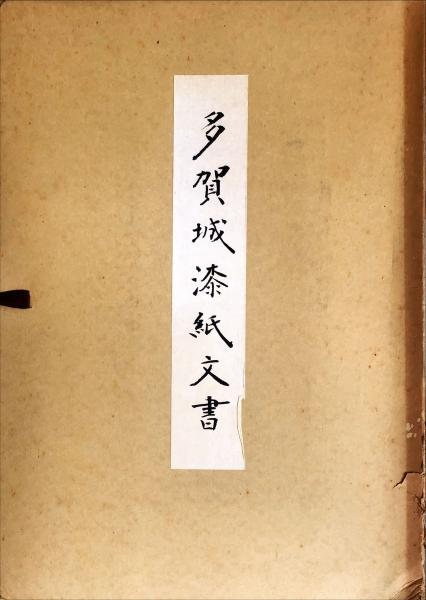 多賀城漆紙文書